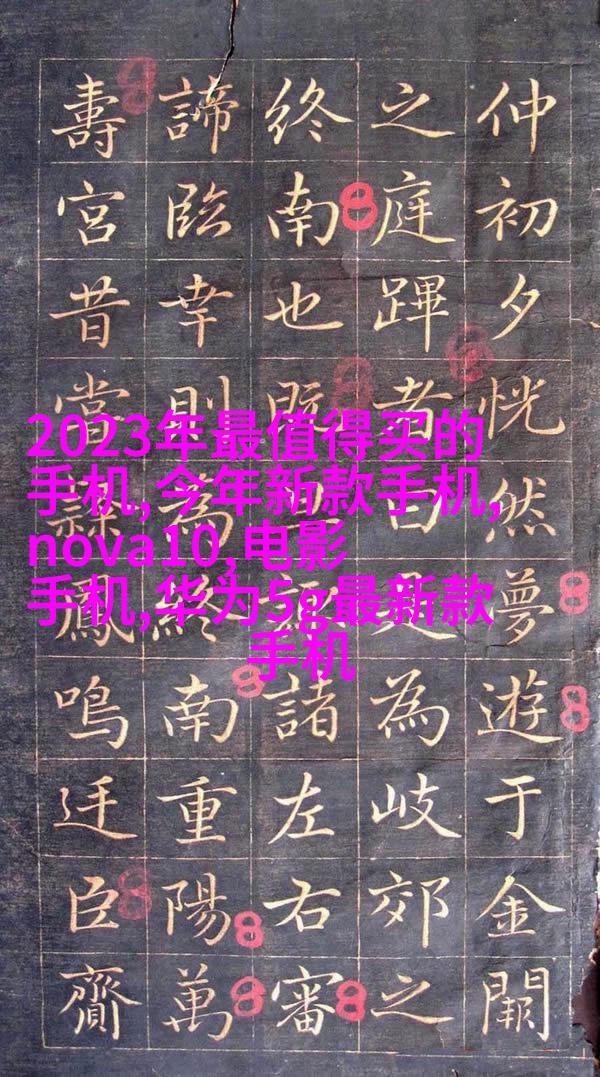 仲初夕恍然夢遊于金闕
之庭蹕者曰為岐郊之
終南也既諸左右審
諦臨幸則為終南重陽萬
壽宮昔當隸鳳鳴迁臣齎
2023年最值得买的
手机,今年新款手机,
nova10,电影
手机,华为5g最新款
手机